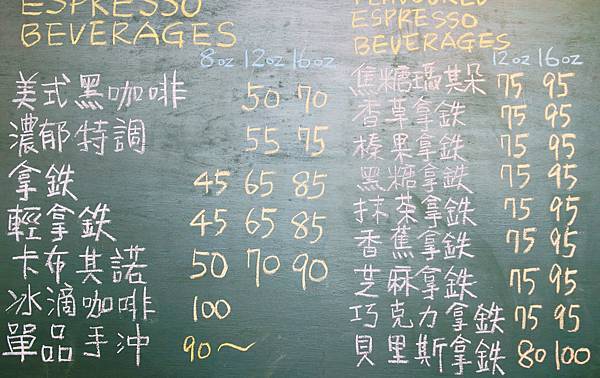 ESPRESSO
BEVERAGES
8oz 12oz 16oz
美式黑咖啡 50 70
濃郁特調 55 75
拿鉄 45 65 85
輕拿鉄 45 65 85
卡布其諾 50 70 90
冰滴咖啡 100
單品手沖 90~
FLAVOURED
ESPRESSO
BEVERAGES
12oz 16oz
焦糖瑪其朵 75 95
香草拿鉄 75 95
榛果拿鉄 75 95
黑糖拿鉄 75 95
抹茶拿鉄 75 95
香蕉拿鉄 75 95
芝麻拿鉄 75 95
巧克力拿鉄 75 95
貝里斯拿鉄 80 100